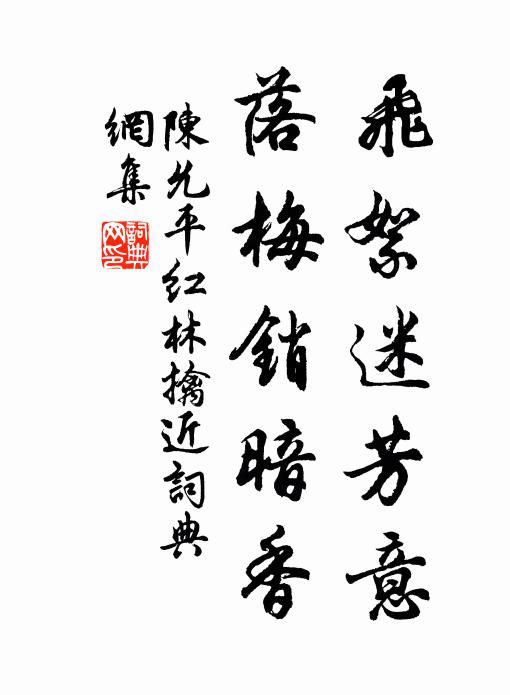 飛絮迷芳意
落梅銷暗香
陳允平紅林擒近詞典
網集
詞典网印